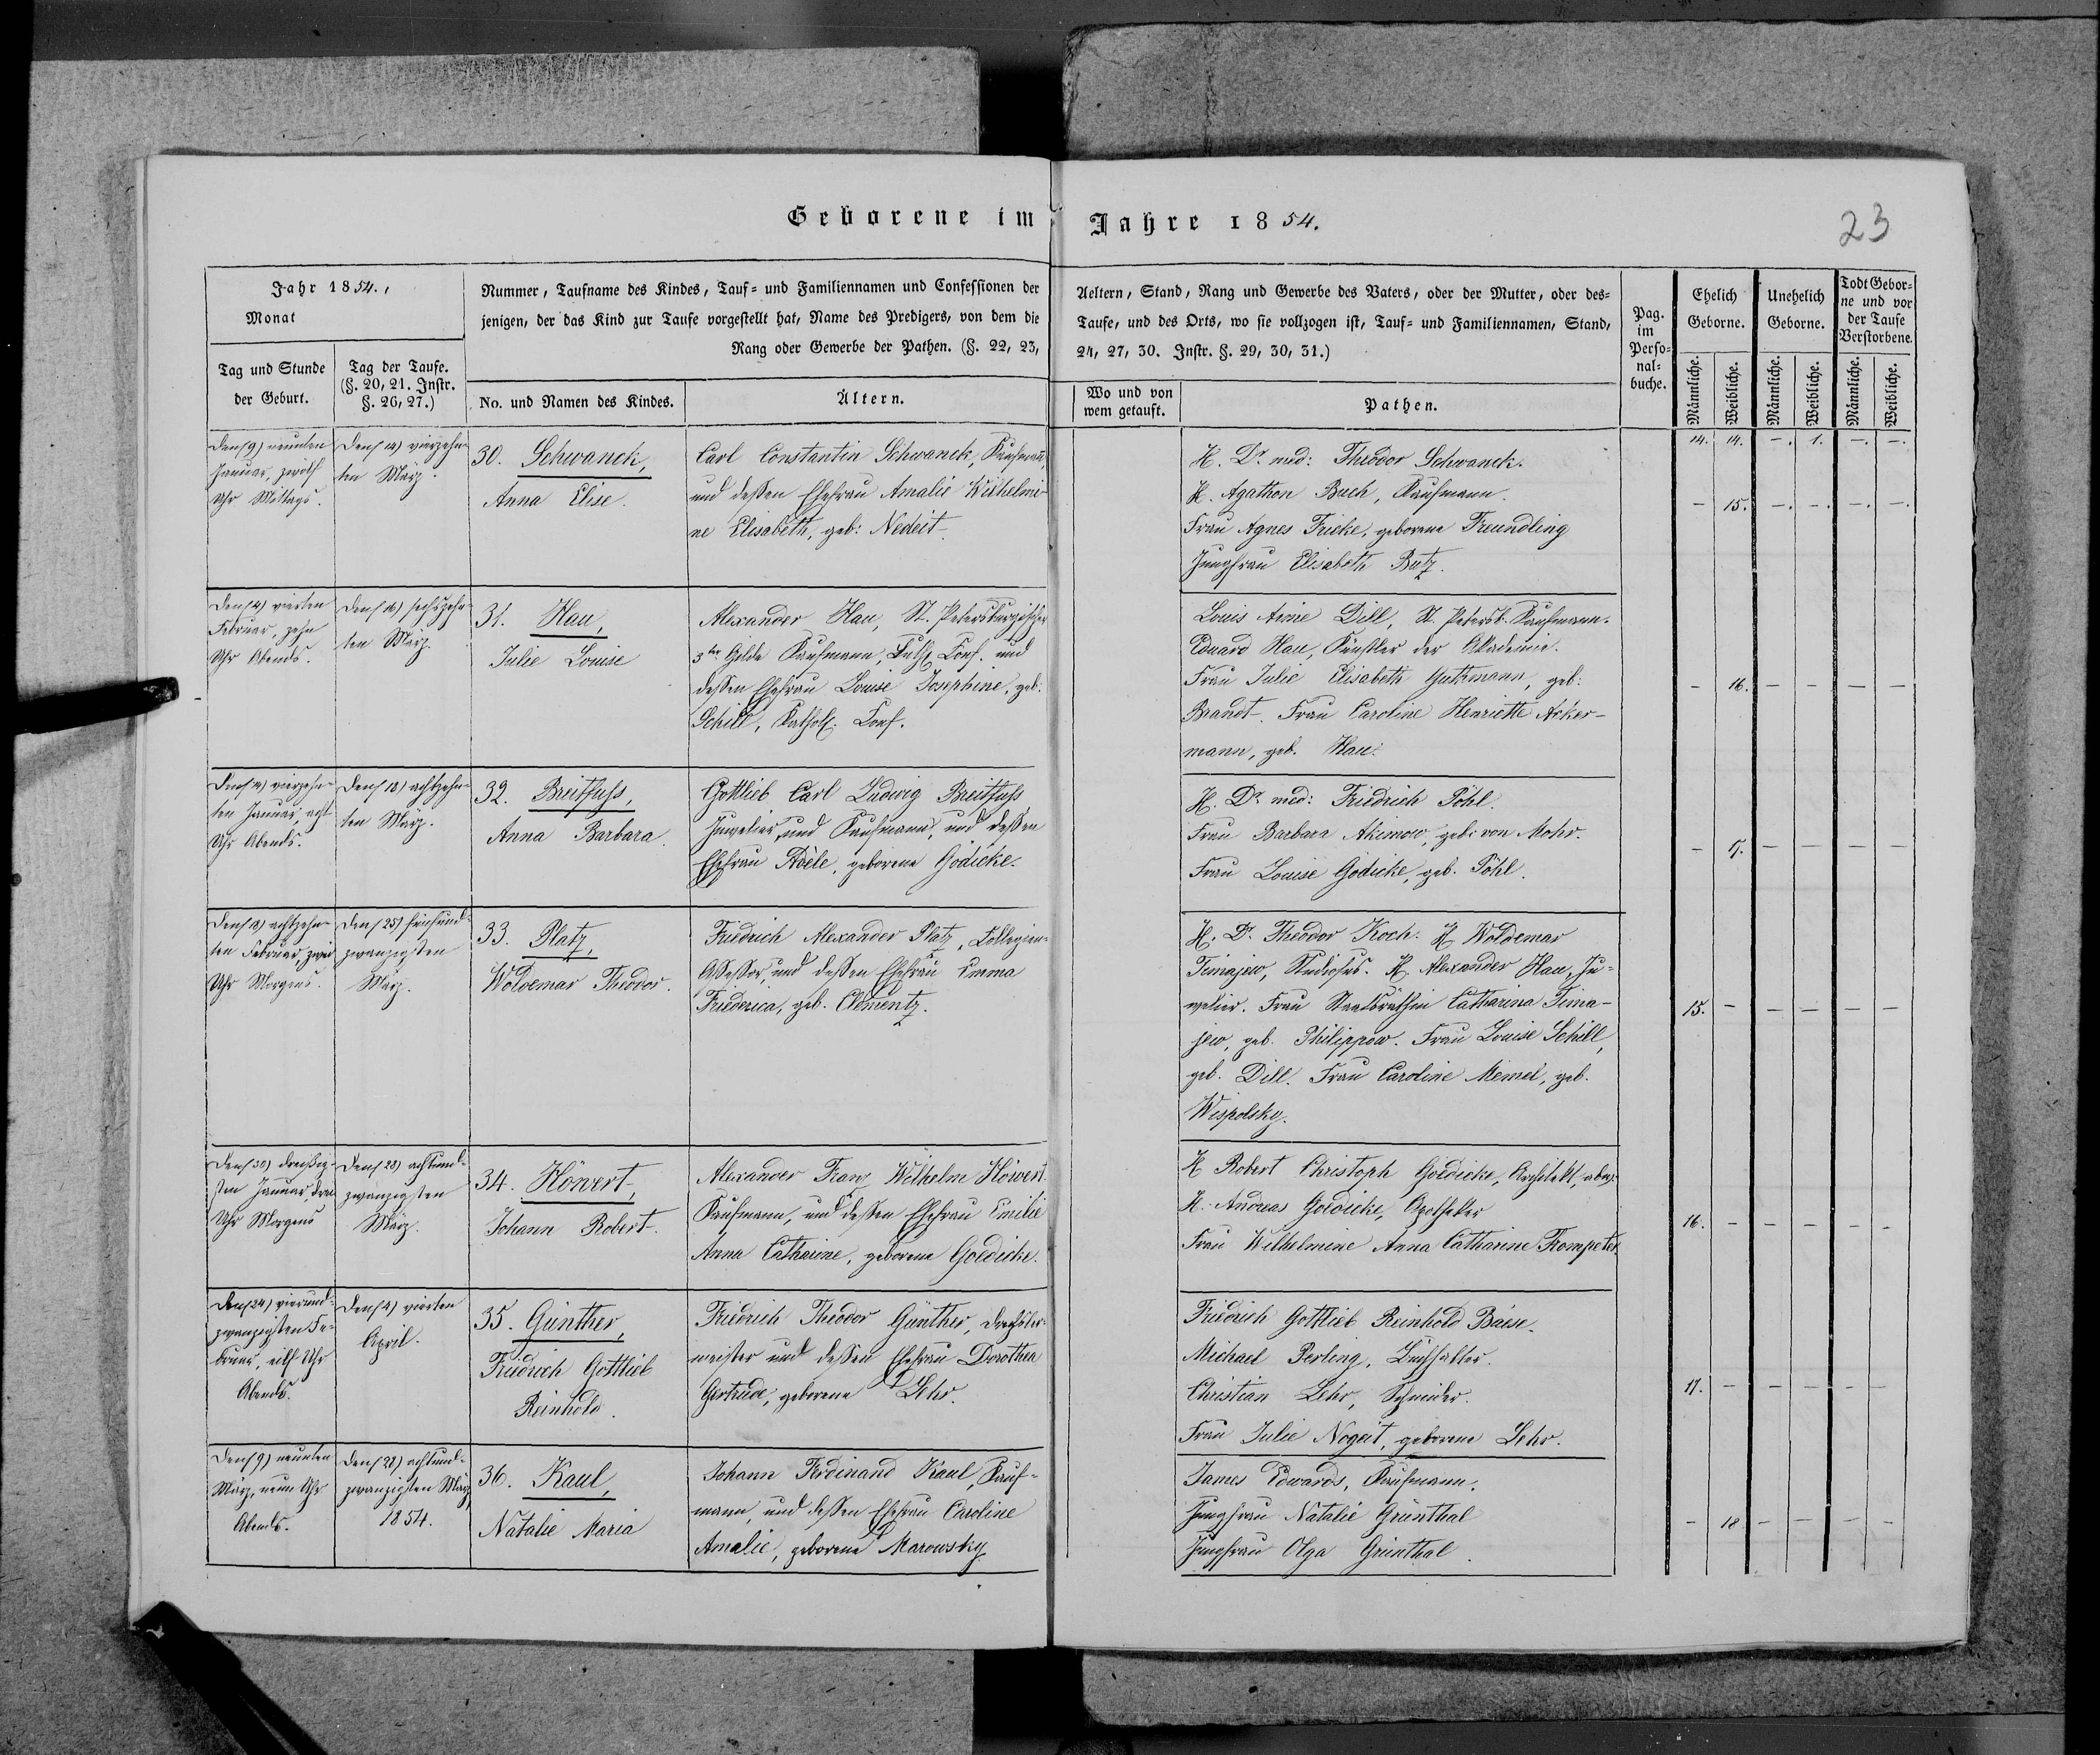 Geborene im Jahre 1854.
23
Jahr 1854.,
Monat
Tag und Stunde
der Geburt.
Tag der Taufe.
(§. 20, 21. Instr.
§. 26, 27.)
Nummer, Taufname des Kindes, Tauf- und Familiennamen und Confessionen der
jenigen, der das Kind zur Taufe vorgestellt hat, Name des Predigers, von dem die
Rang oder Gewerbe der Pathen. (§. 22, 23,
No. und Namen des Kindes.
Ältern.
Aeltern, Stand, Rang und Gewerbe des Vaters, oder der Mutter, oder des-
Taufe, und des Orts, wo sie vollzogen ist, Tauf- und Familiennamen, Stand,
24, 27, 30. Instr. §. 29, 30, 31.)
Wo und von
wem getauft.
Pathen.
Pag.
im
Perso-
nal-
buche.
Ehelich
Geborne.
Unehelich
Geborne.
Todt Gebor-
ne und vor
der Taufe
Verstorbene.
Männliche.
Weibliche.
Männliche.
Weibliche.
Männliche.
Weibliche.
14. 14. -. 1. -. -.
Den (9) neunten
Januar, zwölf
Uhr Mittags.
Den (14) vierzehn-
ten März.
30. Schwanck,
Anna Elise.
Carl Constantin Schwanck, Kaufmann,
und dessen Ehefrau Amalie Wilhelmi-
ne Elisabeth, geb: Nedeit.
H. Dr. med: Theodor Schwanck.
H. Agathon Buch, Kaufmann.
Frau Agnes Fricke, geborene Freundling
Jungfrau Elisabeth Butz.
- 15. -. -. -. -.
Den (4) vierten
Februar, zehn
Uhr Abends.
Den (16) sechszehn-
ten März.
31. Hau,
Julie Louise
Alexander Hau, St. Petersburgischer
3ter Gilde Kaufmann, Luth. Conf. und
dessen Ehefrau Louise Josephine, geb:
Schill, Kathol. Conf.
Louis Aimé Dill, St. Petersb. Kaufmann.
Eduard Hau, Künstler der Akademie.
Frau Julie Elisabeth Guthmann, geb:
Brandt. Frau Caroline Henriette Acker-
mann, geb. Hau.
- 16. - - - -
Den (14) vierzehn-
ten Januar, acht
Uhr Abends.
Den (18) achtzehn-
ten März.
32. Breitfuss,
Anna Barbara.
Gottlieb Carl Ludwig Breitfuss
Juwelier und Kaufmann, und dessen
Ehefrau Adèle, geborene Gödicke.
H. Dr. med: Friedrich Pöhl.
Frau Barbara Akimow, geb: von Mohr.
Frau Louise Gödicke, geb. Pöhl.
- 17. - - - -
Den (18) achtzehn-
ten Februar, zwei
Uhr Morgens.
Den (25) fünfund-
zwanzigsten
März.
33. Platz,
Woldemar Theodor.
Friedrich Alexander Platz, Collegien-
Assessor, und dessen Ehefrau Emma
Friederica, geb. Clementz.
H. Dr. Theodor Koch. H. Woldemar
Timajew, Studiosus. H. Alexander Hau, Ju-
welier. Frau Staatsräthin Catharina Tima-
jew, geb. Philippow. Frau Louise Schill,
geb. Dill. Frau Caroline Memel, geb.
Wispolsky.
15. - - - - -
Den (30) dreißig-
sten Januar, drei
Uhr Morgens
Den (28) achtund-
zwanzigsten
März.
34. Höwert,
Johann Robert.
Alexander Franz Wilhelm Höwert
Kaufmann, und dessen Ehefrau Emilie
Anna Catharine, geborene Goedicke.
H. Robert Christoph Goedicke, Architekt,
H. Andreas Goedicke, Apotheker
Frau Wilhelmine Anna Catharine Trompeter
16. - - - - -
Den (24) vierund-
zwanzigsten Fe-
bruar, eilf Uhr
Abends.
Den (4) vierten
April.
35. Günther,
Friedrich Gottlieb
Reinhold.
Friedrich Theodor Günther, Drechsler-
meister und dessen Ehefrau Dorothea
Gertrude, geborene Lehr.
Friedrich Gottlieb Reinhold Baese.
Michael Perling, Buchhalter.
Christian Lehr, Schneider.
Frau Julie Nogeit, geborene Lehr.
17. - - - - -
Den (9) neunten
März, neun Uhr
Abends.
Den (28) achtund-
zwanzigsten März
1854.
36. Kaul,
Natalie Maria
Johann Ferdinand Kaul, Kauf-
mann, und dessen Ehefrau Caroline
Amalie, geborene Marowsky
James Edwards, Kaufmann.
Jungfrau Natalie Grünthal
Jungfrau Olga Grünthal.
- 18 - - - -